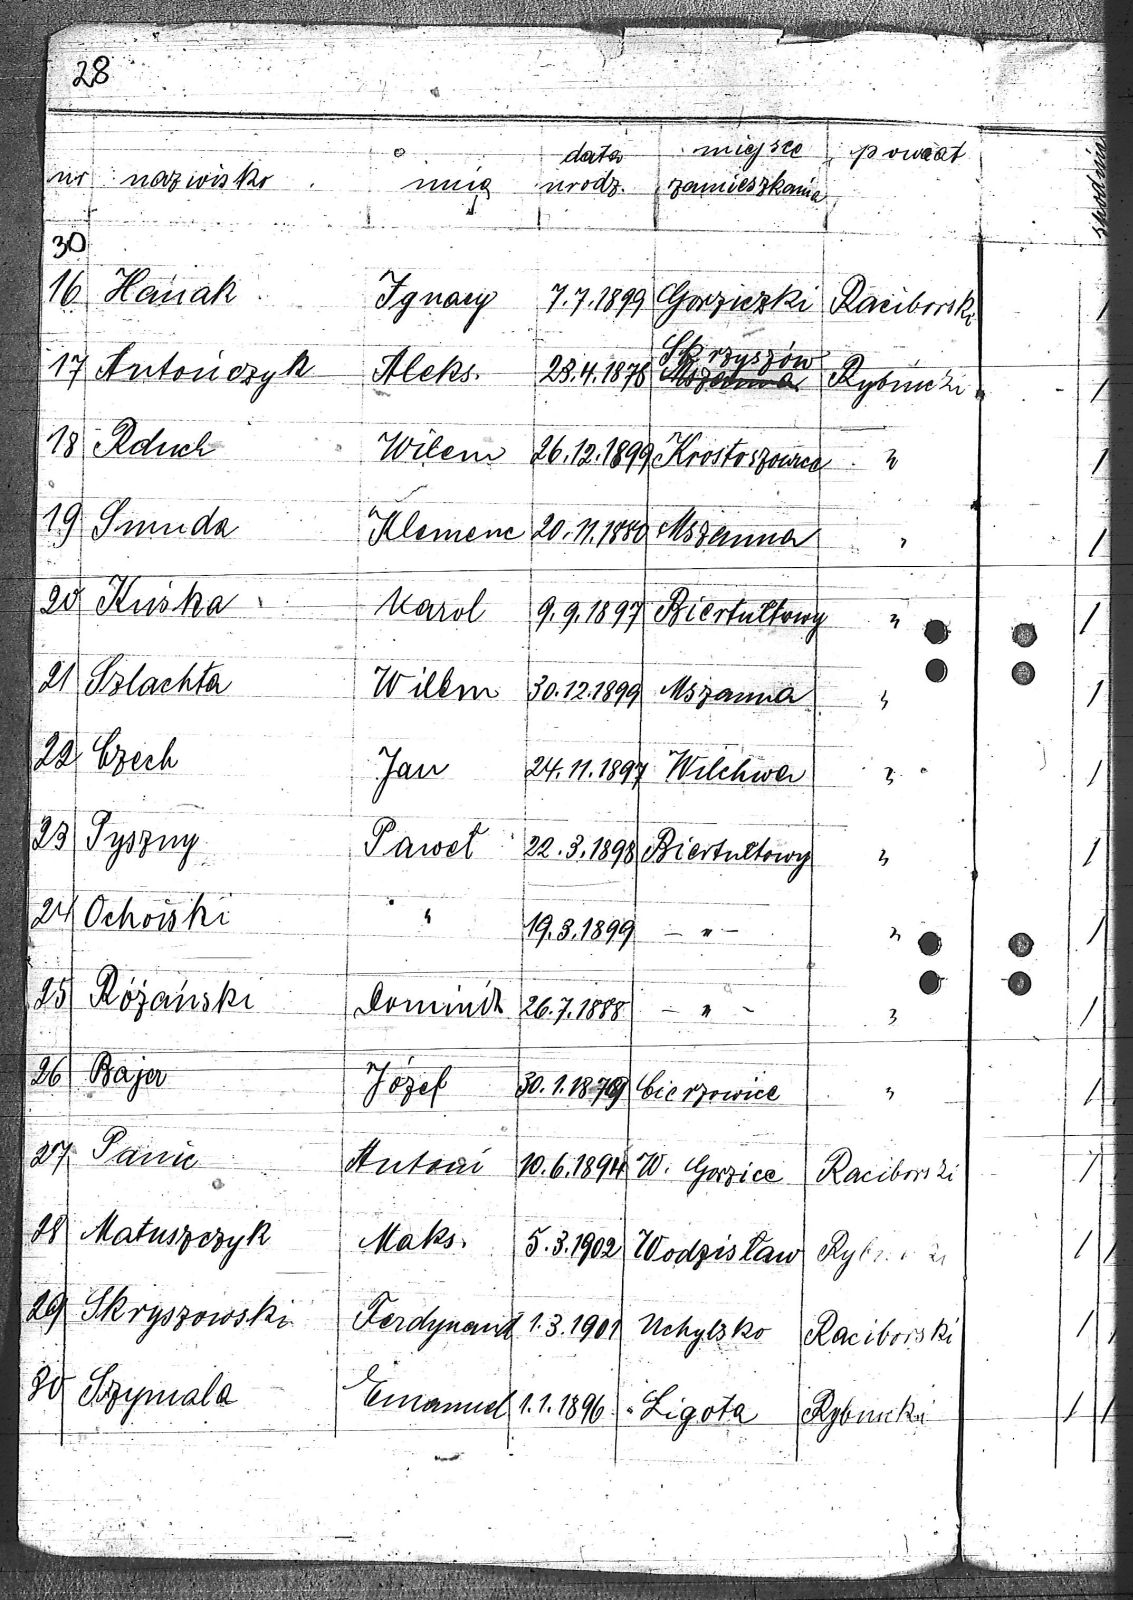 28
nr nazwisko imię data urodz. miejsce zamieszkania powiat
30
16 Hanak Ignacy 7.7.1899 Gorziczki Raciborski /
Skrzyszów
17 Antończyk Aleks. 28.4.1878 Mszanna Rybnicki /
18 Rduch Wilem 26.12.1899 Krostoszowice " /
19 Smuda Klemenc 20.11.1880 Mszanna " /
20 Kuśka Karol 9.9.1897 Biertułtowy " /
21 Szlachta Wilem 30.12.1899 Mszanna " /
22 Czech Jan 24.11.1897 Wilchwa " /
23 Pyszny Paweł 22.3.1898 Biertułtowy " /
24 Ochojski " 19.3.1899 - " - " /
25 Różański Dominik 26.7.1888 - " - " /
26 Bajer Józef 30.1.1879 Cierzowice " /
27 Panic Antoni 10.6.1894 W. Gorzice Raciborski /
28 Matuszczyk Maks. 5.3.1902 Wodzisław /
29 Skryszowski Ferdynand 1.3.1901 Uchylsko Raciborski /
30 Szymala Emanuel 1.1.1896 Ligota Rybnicki / /